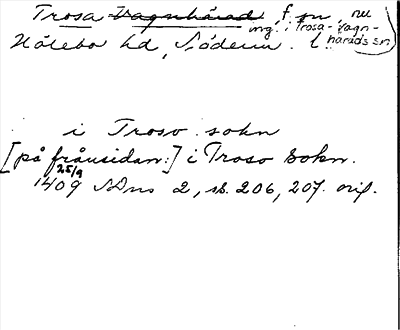 Trosa Vagnhärad, f. sn, nu
ing. i Trosa-Vagn-
härads sn)
Hölebo hd, Söderm. l.
i Troso sokn
[på frånsidan:] i Troso Sokn.
25/9
1409 SDns 2, sid. 206, 207. orig.